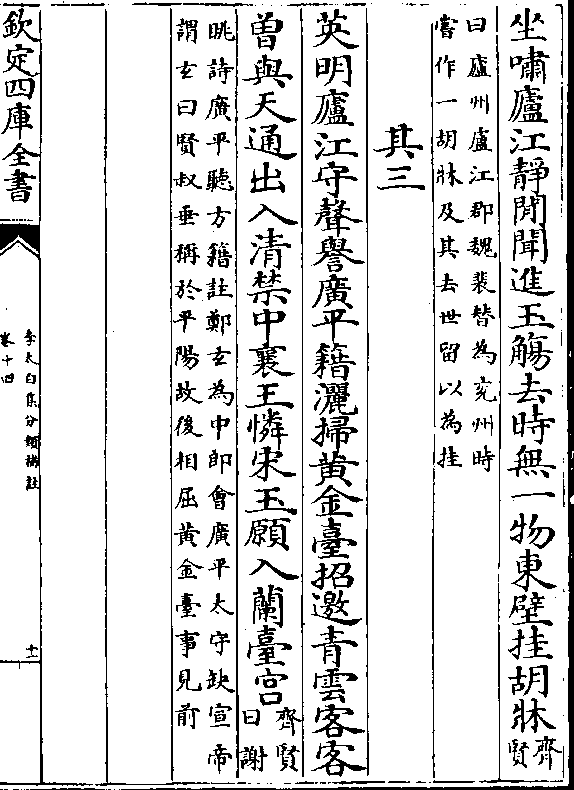 坐嘯廬江靜閒聞進玉觴去時無一物東壁挂胡牀齊賢
曰廬州廬江郡魏裴替為兖州時
嘗作一胡牀及其去世留以為挂
其三
英明廬江守聲譽廣平籍灑掃黄金臺招邀青雲客客
曾與天通出入清禁中襄王憐宋玉願入蘭臺宫齊賢曰謝
眺詩廣平聽方籍註鄭玄為中郎會廣平太守缺宣帝
謂玄曰賢叔垂稱於平陽故後相屈黄金臺事見前
欽定四庫全書
李太白集分類補註
卷十四
十一